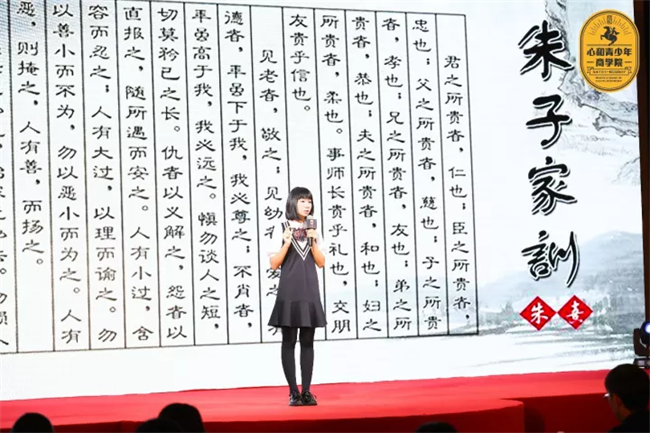 心和青少年
商学院
朱子家訓
朱喜
君之所贵者，仁也；臣之所贵者，
忠也；父之所贵者，慈也；子之所贵
者，孝也；兄之所贵者，友也；弟之所
贵者，恭也；夫之所贵者，和也；妇之
所贵者，柔也。事师长贵乎礼也，交朋
友贵乎信也。
见老者，敬之；见幼者，爱之
德者，年虽下于我，我必尊之；不肖者，
年虽高于我，我必远之。慎勿谈人之短，
切莫矜己之长。仇者以义解之，怨者以
直报之，随所遇而安之。人有小过，含
容而忍之；人有大过，以理而谕之。勿
以善小而不为，勿以恶小而为之。人有
恶，则掩之，人有善，而扬之。